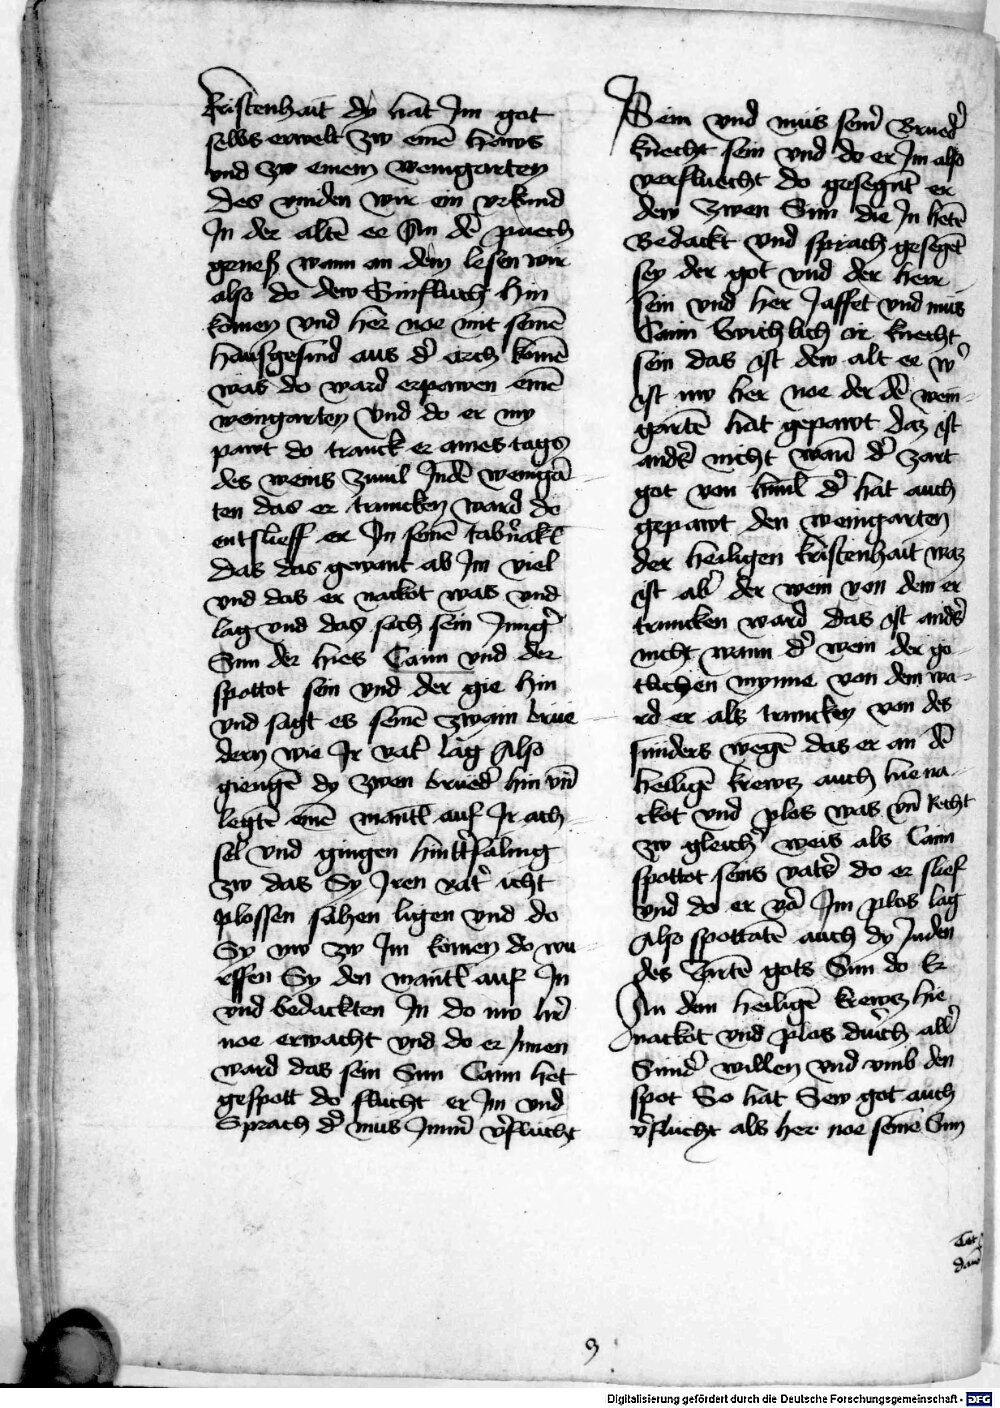 kristenhait dy hat Jm got
selbs erwelt zw einē haws
vnd zw einem weingarten
des vinden wir ein vrkund
Jn der altē ee An dē puech
geneß wann an dem lesen wir
also do dew Sinfluch hin
komen vnd her noe mit seinē
hausgesind aus d' arch komē
was do ward erpawen einē
weingarten Vnd do er nw
pawt do tranck er aines tags
des weins zuuil Jndē weingā-
ten das er truncken ward do
entslieff er Jn seinē tab'nakl
das das gewant ab Jm viel
vnd das er nackot was vnd
lag vnd das sach sein Jung'
Sun der hies Caim vnd der
spottot sein vnd der gie hin
vnd sagt es seinē zwain brue-
dern wie Jr vat' lag Also
giengē dy zwen brued' hin vn̄
legtē einē mantl auf Jr ach-
sel vnd gingen hintt'saling
zw das Sy Jren vat' icht
plossen sahen ligen vnd do
Sy nw zw Jm komen do wu-
rffen Sy den mantl auf Jn
vnd bedackten Jn do nw h'r
noe erwacht vnd do er Jnnen
ward das sein Sun Caim het
gespott do flucht er Jm vnd
Sprach d' mus Jmm' v'flucht
Sein vnd mus sein' Brued'
knecht sein vnd do er Jm also
verfluecht do gesegnt er
dew zwen Sun die Jn hetē
Bedackt vnd sprach gesegēt
sey der got vnd der herr
sein vnd her Jaffet vnd mus
Caim ewichlich ir knecht
sein das ist dew alt ee w'
ist nw her noe der dē wein-
gartē hat gepawt daz ist
anders nicht wan̄ d' zart
got von himl d' hat auch
gepawt den weingarten
der heiligen kristenhait waz
ist ab' der wein von dem er
truncken ward das ist and's
nicht wann d' wein der go-
tlichen mynne von dem wa-
rd er als truncken von des
sunders wegē das er an dē
heiligē krewtz auch hie na-
ckot vnd plos was vn̄ Recht
zw gleich' weis als Caim
spottot seins vat's do er slief
vnd do er vō Jm plos lag
Also spottatē auch dy Juden
des zartē gots Sun do Er
An dem heiligē krewtz hie
nackot vnd plos durch all'
Sund' willen vnd vmb den
spot So hat Sew got auch
v'flucht als her noe seinē Sun
9
Digitalisierung gefördert durch die Deutsche Forschungsgemeinschaft - DFG